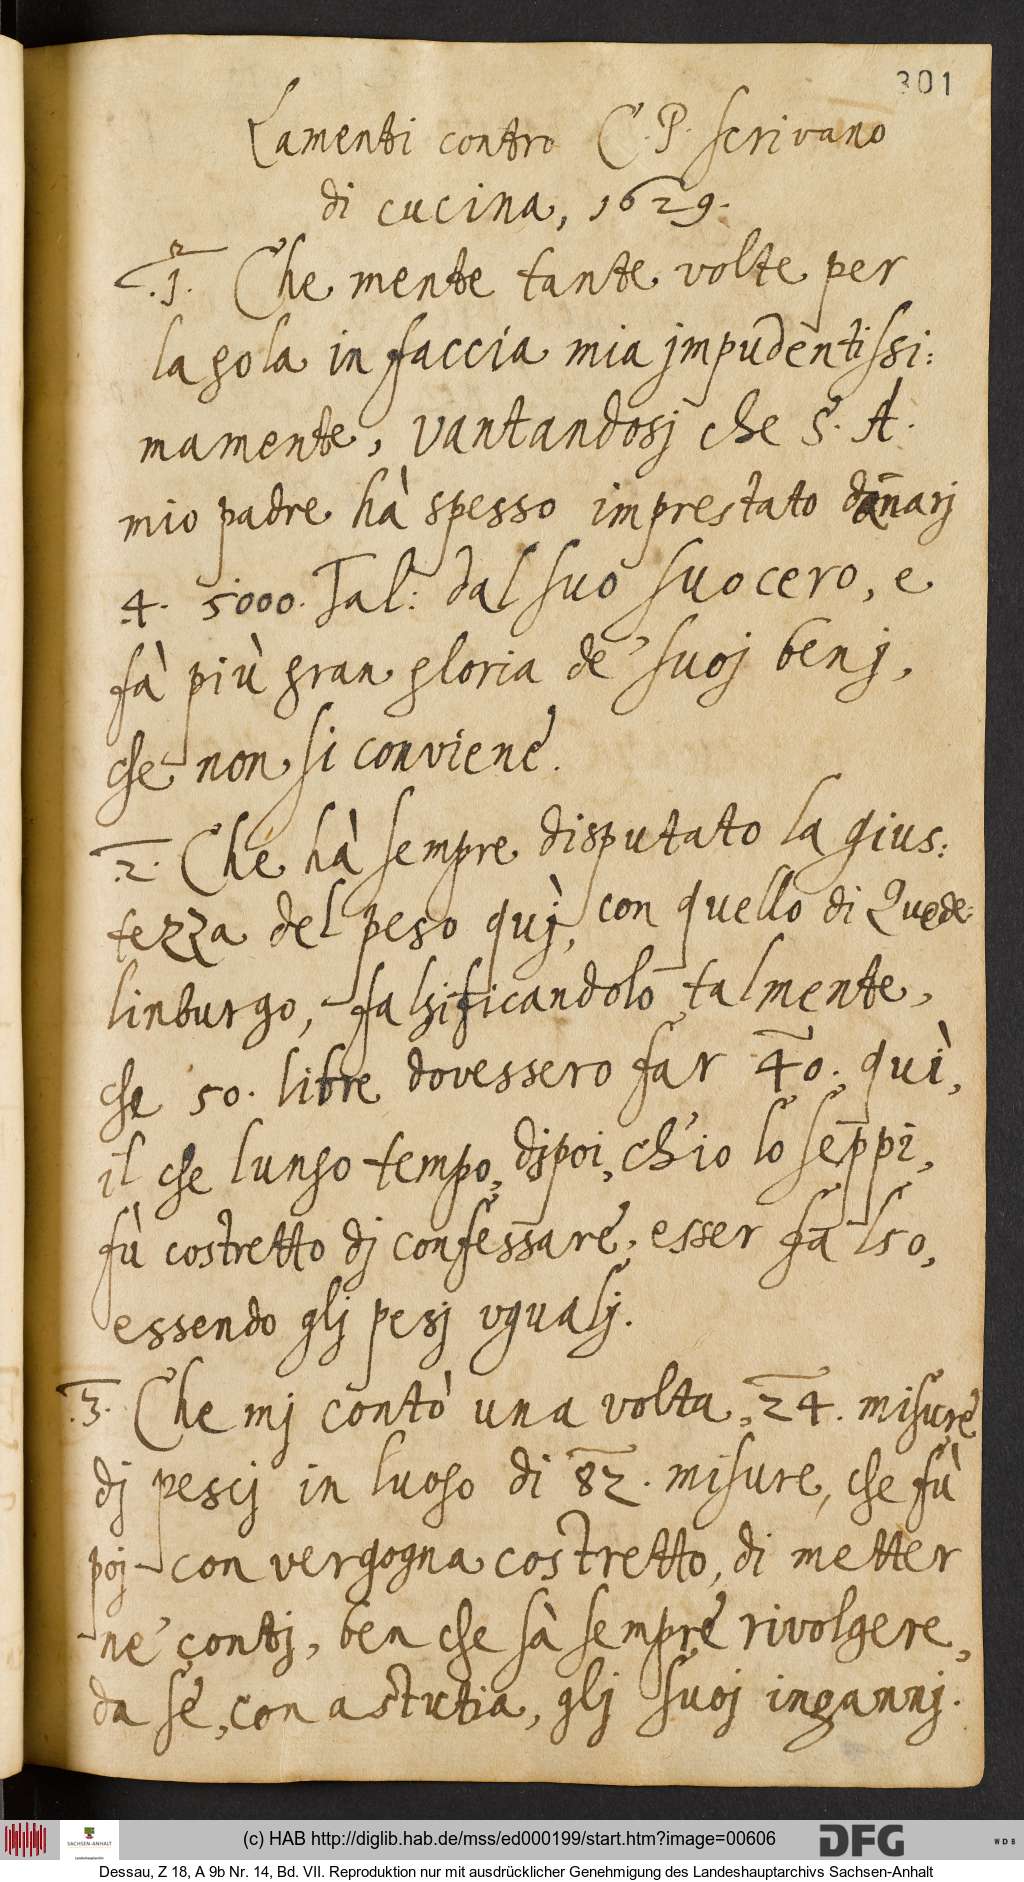 301
Lamenti contro C. P. scrivano
di cucina, 1629.
.1. Che mente tante volte per
la gola in faccia mia jmpudentissi:
mamente, vantandosj che S. A.
mio padre hà spesso imprestato danarj
4. 5000. Tal: dal suo suocero, e
fà più gran gloria de' suoj benj,
che non si conviene.
.2. Che hà sempre disputato la gius:
tezza del peso quì, con quello di Quede:
linburgo, falsificandolo talmente,
che 50. libre dovessero far 40. quì,
il che lungo tempo, djpoi, ch'io lo seppi,
fù costretto dj confessare, esser falso,
essendo glj pesj vgualj.
.3. Che mj contò una volta, 24. misure
dj pescj in luogo di 82. misure, che fù
poj con vergogna costretto, di metter
ne' contj, ben che sà sempre rivolgere,
da se, con astutia, glj suoj ingannj.
SACHSEN-ANHALT
(c) HAB http://diglib.hab.de/mss/ed000199/start.htm?image=00606
DFG
WDB
Dessau, Z 18, A 9b Nr. 14, Bd. VII. Reproduktion nur mit ausdrücklicher Genehmigung des Landeshauptarchivs Sachsen-Anhalt